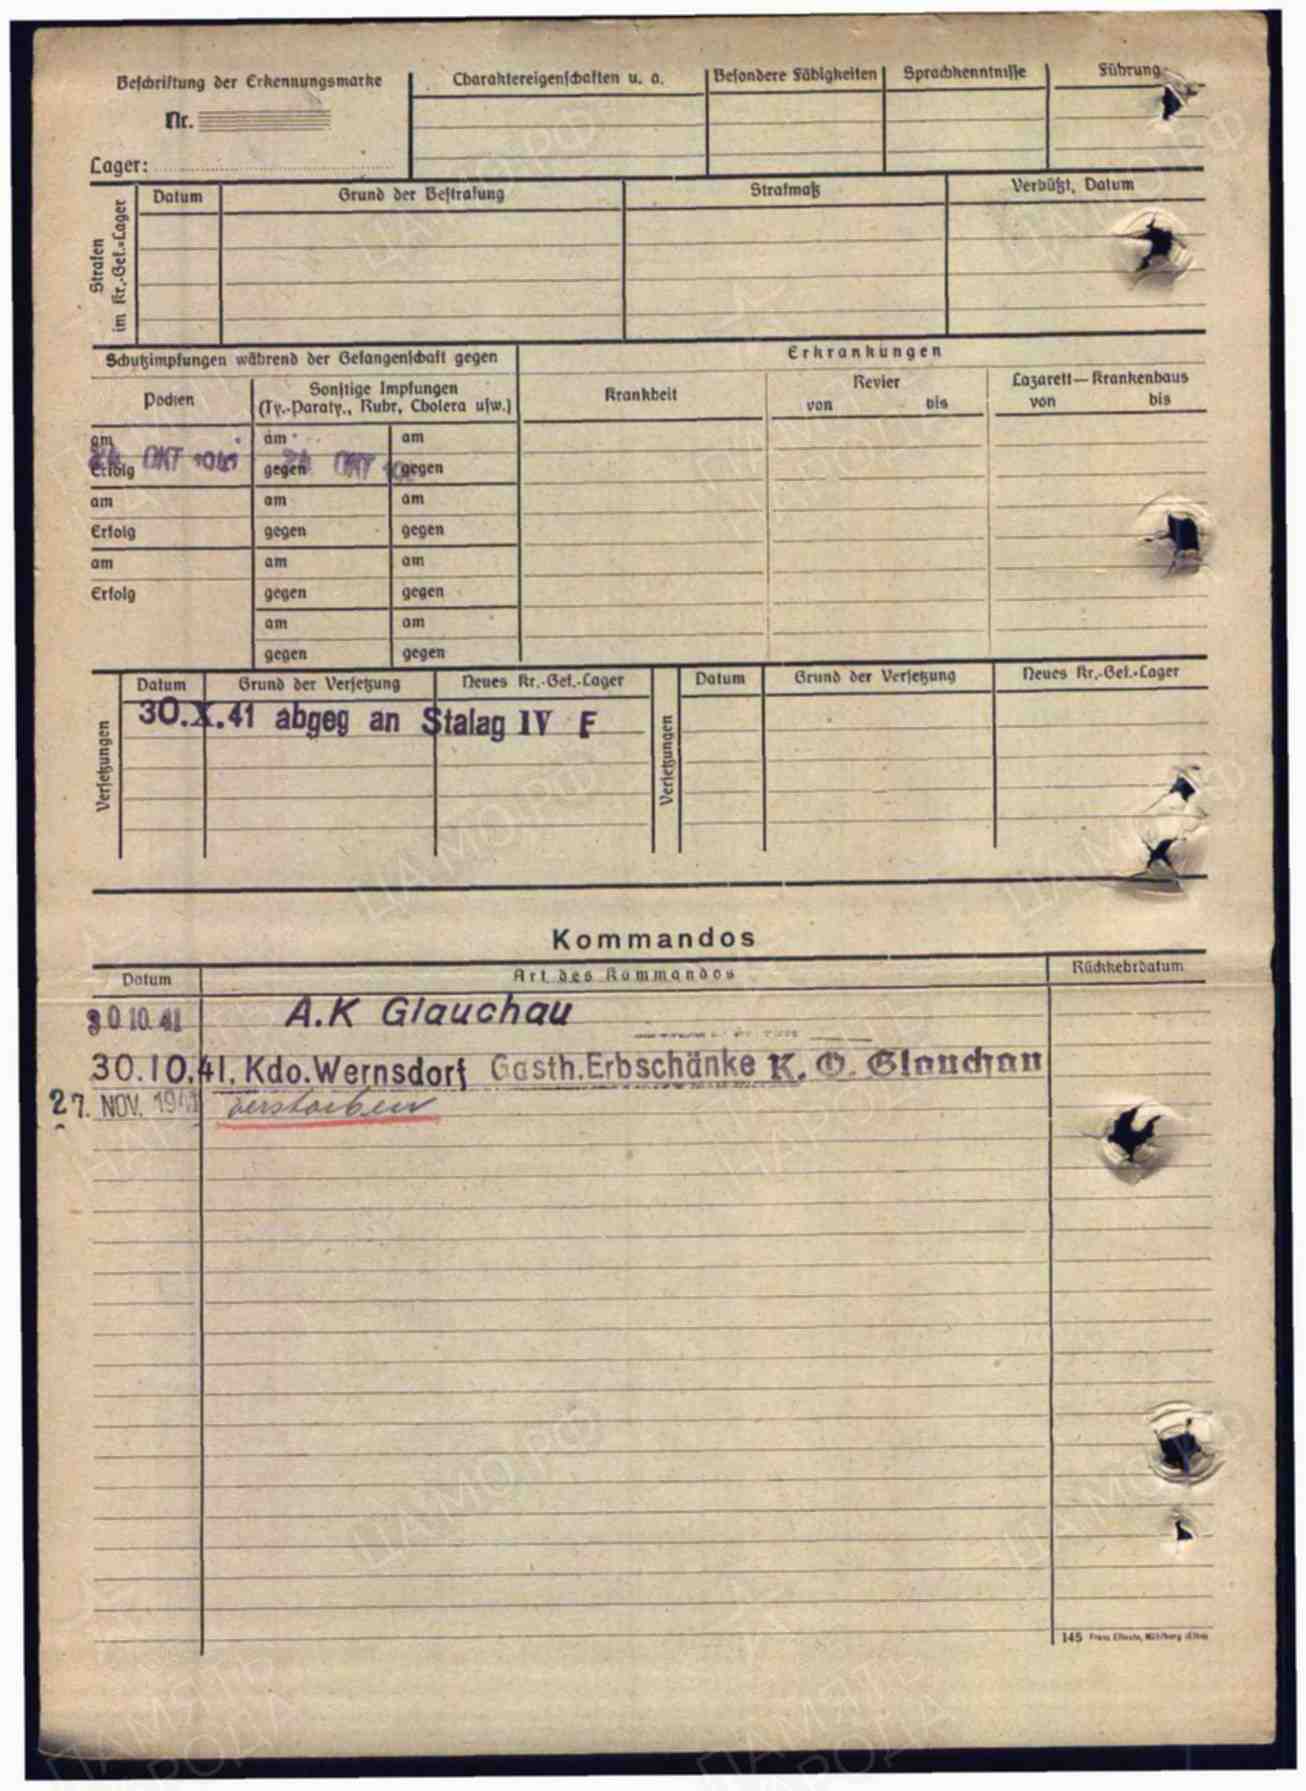 Beschriftung der Erkennungsmarke
Nr.
Lager:
Charaktereigenschaften u. a.
Besondere Fähigkeiten
Sprachkenntnisse
Führung
Strafen
im Kr.-Gef.-Lager
Datum
Grund der Bestrafung
Strafmaß
Verbüßt, Datum
Schutzimpfungen während der Gefangenschaft gegen
Erkrankungen
Pocken
Sonstige Impfungen
(Ty.-Paraty., Ruhr, Cholera usw.)
Krankheit
Revier
von bis
Lazarett—Krankenhaus
von bis
am am am
OKT 1941 OKT
Erfolg gegen gegen
am am am
Erfolg gegen gegen
am am am
Erfolg gegen gegen
am am
gegen gegen
Versetzungen
Datum Grund der Versetzung Neues Kr.-Gef.-Lager
30.X.41 abgeg an Stalag IV F
Versetzungen
Datum Grund der Versetzung Neues Kr.-Gef.-Lager
Kommandos
Datum Art des Kommandos Rückkehrdatum
30 10. 41 A.K Glauchau
30.10.41. Kdo.Wernsdorf Gasth.Erbschänke K. O. Glauchau
27. NOV. 1941 verstorben
145
ЦАМО.РФ
ПАМЯТЬ
НАРОДА